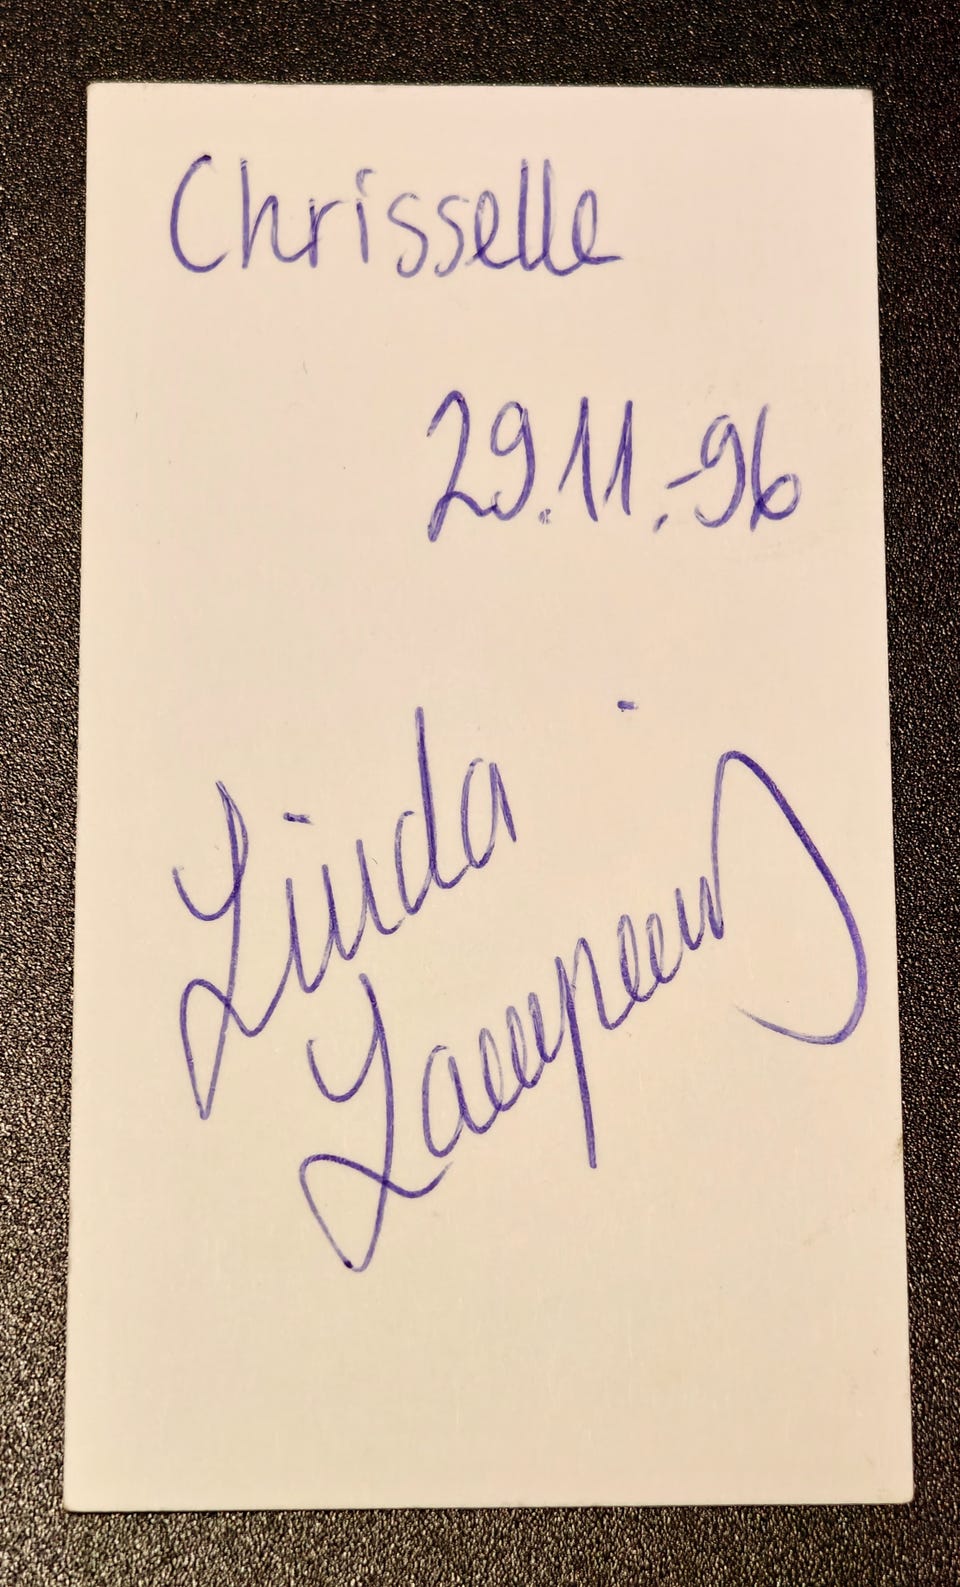 Chrisselle
29.11.-96
Linda
Lampenius